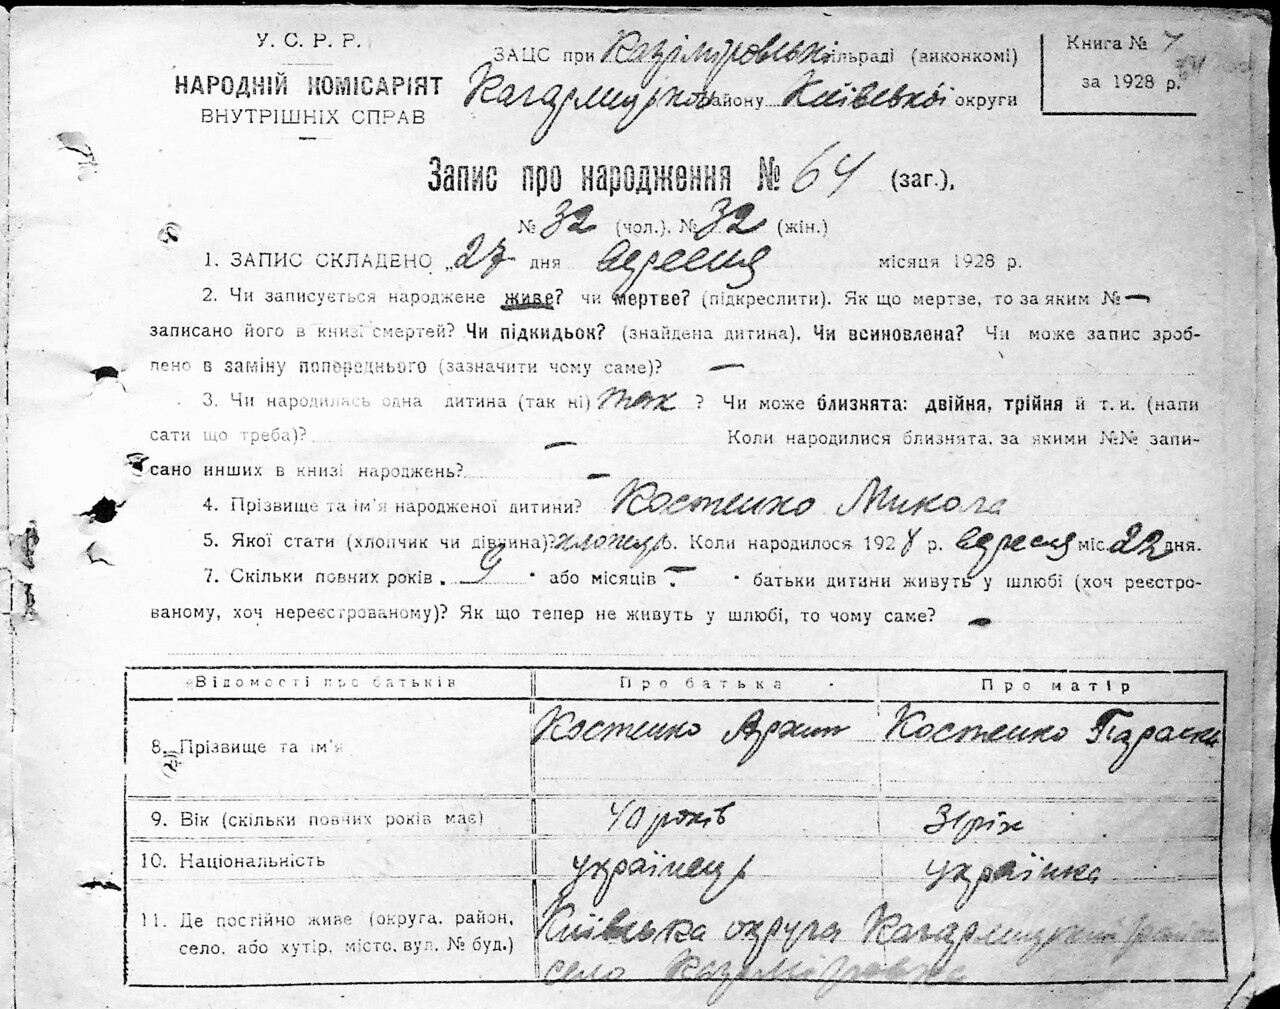 У. С. Р. Р.
НАРОДНІЙ КОМІСАРІЯТ
ВНУТРІШНІХ СПРАВ
ЗАЦС при Казімировській сільраді (виконкомі)
Кагарлицького району Київської округи
Книга №
за 1928 р.
Запис про народження № 64 (заг.),
№ 32 (чол.), № 32 (жін.)
1. ЗАПИС СКЛАДЕНО „27 дня вересня місяця 1928 р.
2. Чи записується народжене живе? чи мертве? (підкреслити). Як що мертве, то за яким № —
записано його в книзі смертей? Чи підкидьок? (знайдена дитина). Чи всиновлена? Чи може запис зроб-
лено в заміну попереднього (зазначити чому саме)? —
3. Чи народилась одна дитина (так ні) так ? Чи може близнята: двійня, трійня й т. и. (напи
сати що треба)? — Коли народилися близнята, за якими №№ запи-
сано инших в книзі народжень? —
4. Прізвище та ім'я народженої дитини? Костенко Микола
5. Якої стати (хлопчик чи дівчина)? хлопець. Коли народилося 1928 р. вересня міс. 22 дня.
7. Скільки повних років 9 або місяців — батьки дитини живуть у шлюбі (хоч реєстро-
ваному, хоч нереєстрованому)? Як що тепер не живуть у шлюбі, то чому саме? —
Відомості про батьків Про батька Про матір
8. Прізвище та ім'я Костенко Костенко Параска
9. Вік (скільки повних років має) 40 років 31 рік
10. Національність українець українка
11. Де постійно живе (округа, район,
село, або хутір, місто, вул. № буд.)
Київська округа Кагарлицький район
село Казіміровка